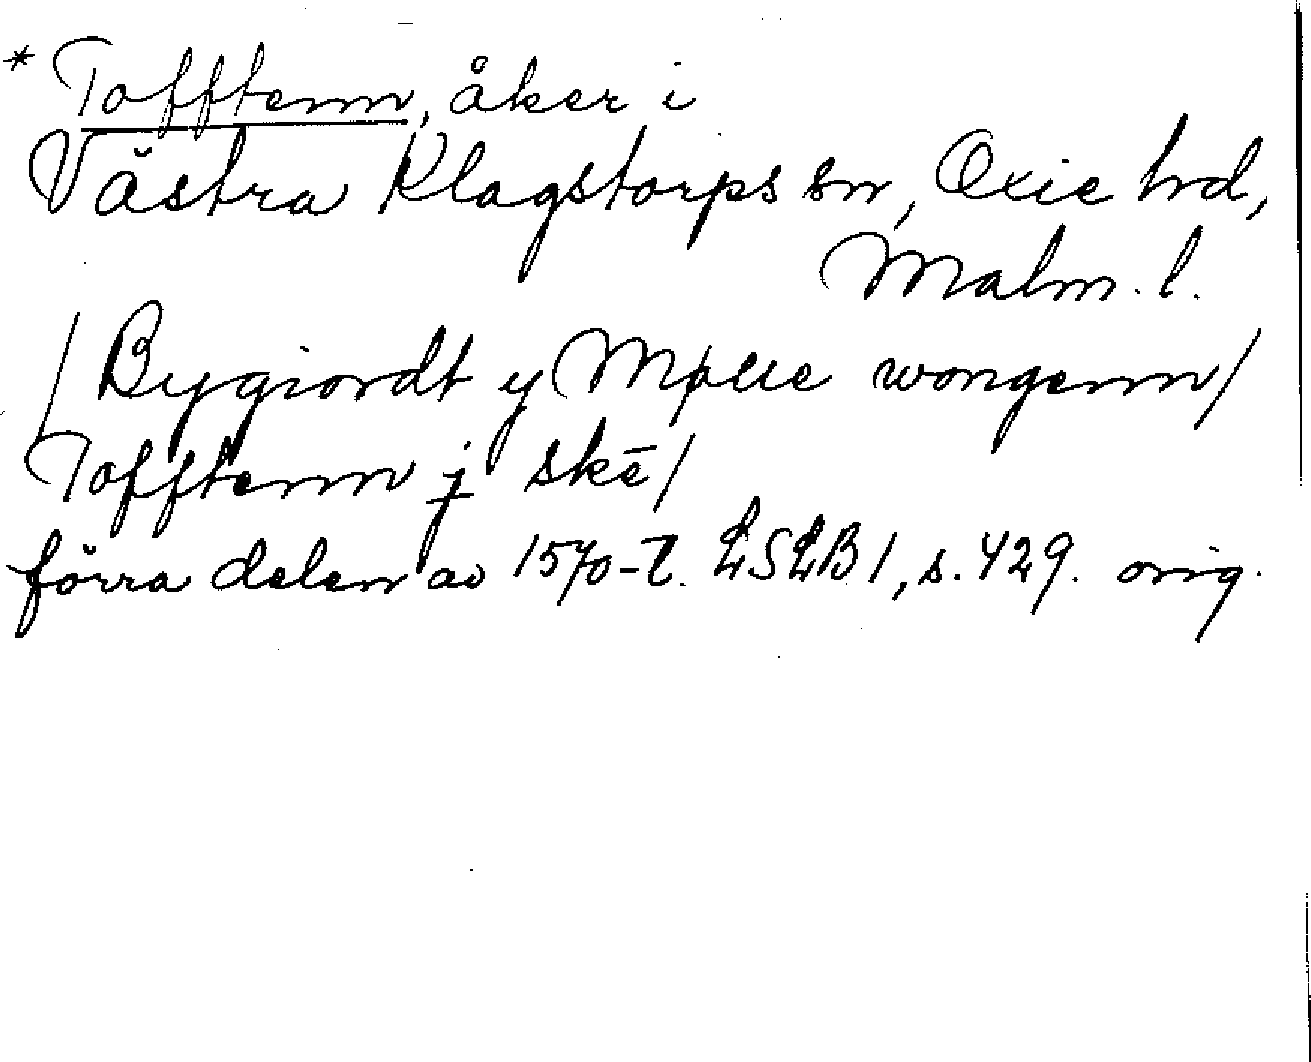 * Tofftenn, åker i
Västra Klagstorps sn, Oxie hd,
Malm. l.
/ Bygiordt y Mølle wongenn /
Tofftenn j skē /
förra delen av 1570-t. LSLB 1, s. 429. orig.